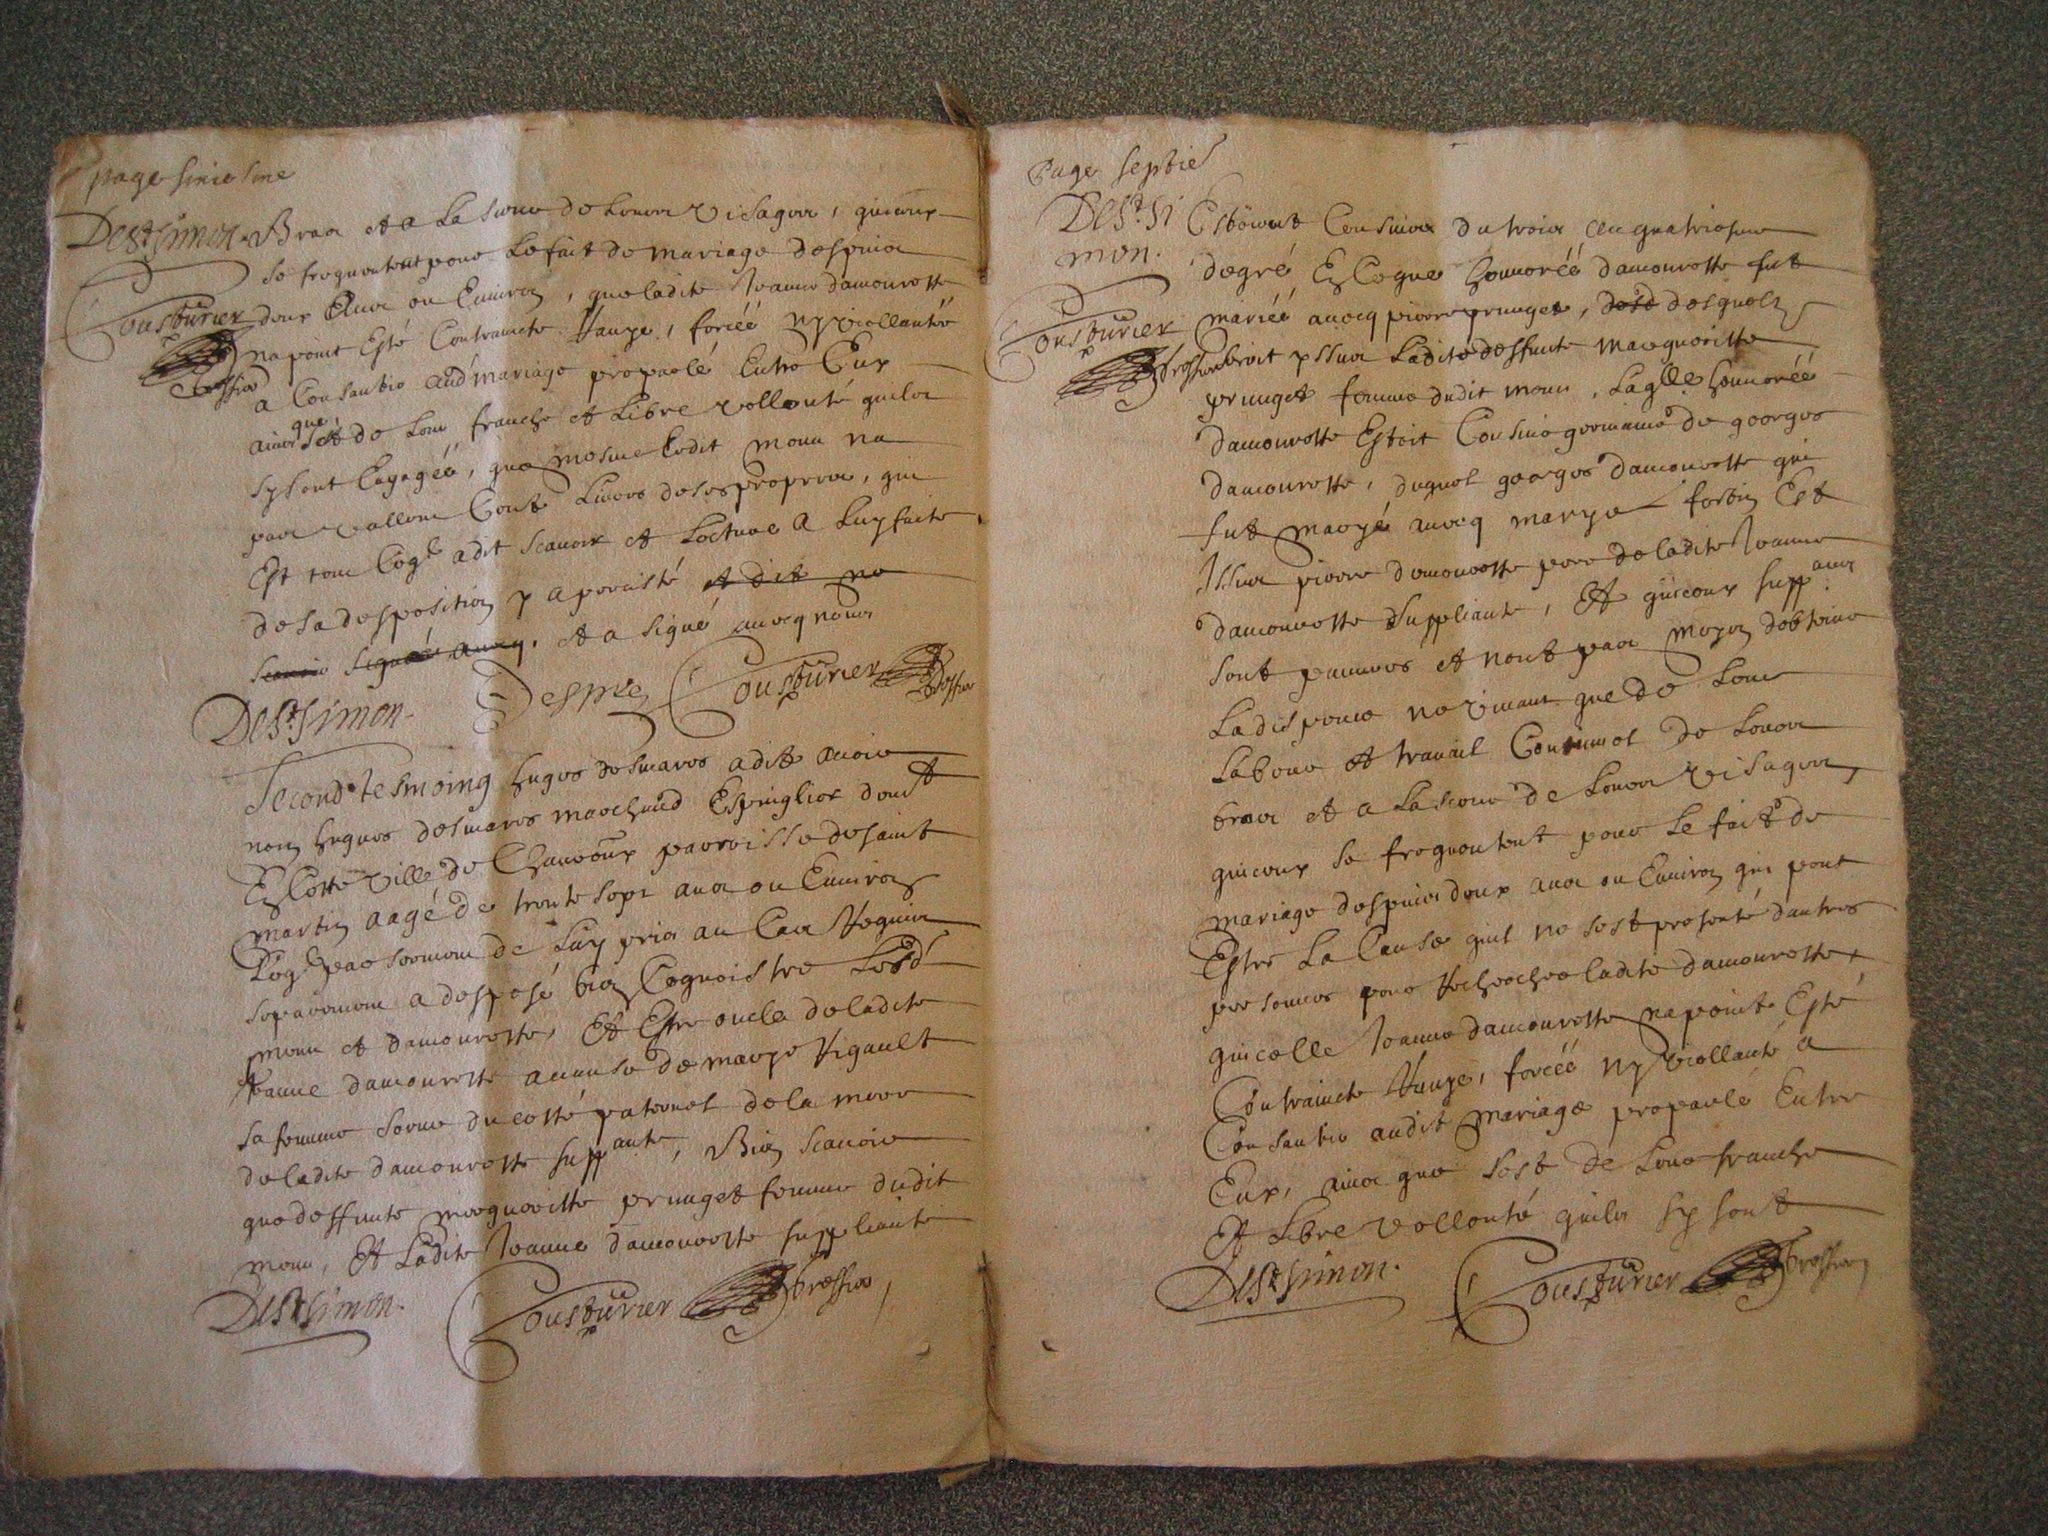 page sixiesme
De St Simon Bras et a la sueur de leurs visages, quiceux
Cousturier
brossier
se frequentent pour le fait de mariage despuis
deux ans ou environ, que ladite Jeanne damourette
na point esté contrainte, forcéé ny viollantéé
a consantir aud mariage proparlé entre eux
ains que sest de leur franche et libre vollonté quils
sy sont engagés, que mesme ledit monu na
pas vallant cent livres de ses propres, qui
est tout cog^t a dit scavoir et lecture a luy faite
de sa desposition y a percisté et dit ne
scavoir signer avecq, et a signé avecq nous
De St Simon Despres Cousturier brossier
Second tesmoing hugues desmares a dit avoir
nom hugues desmares marchand Espinglier demt
En Cette ville de Chauvoux parroisse de saint
martin aagé de trente sept ans ou Environ
Log^t par serment de luy pris au Cas Requis
separement a desposé bien Cognoistre lesd
monu et damourette, Et Estre oncle de ladite
Jeanne damourette a cause de marye Rigault
sa femme soeur du costé paternel de la mere
de ladite damourette supp^ante, Bien scavoir
que deffunte margueritte prunget femme dudit
monu, Et ladite Jeanne damourette suppliante
De St Simon. Cousturier brossier
Page septie
De St Si
mon.
Cousturier
brossier
Estoient Cousines du trois au quatriesme
degré En Ce que honnoréé damourette fut
mariéé avecq pierre prunget, desd desquels
Estoit yssue ladite deffunte margueritte
prunget femme dudit monu, laglle honnoréé
damourette Estoit Cousine germaine de georges
damourette, duquel georges damourette qui
fut maryé avecq marye fortin Est
Issue pierre damourette pere de ladite Jeanne
damourette suppliante, Et quiceux supp^ans
sont pauvres et nont pas moyen dobtenir
la dispence ne vivant que de leur
labeur et travail Continuel de leurs
bras et a la sueur de leurs visages,
quiceux se frequentent pour le fait de
mariage despuis deux ans ou Environ qui peut
Estre la Cause quil ne sest presenté dautres
personnes pour Rechercher ladite damourette
quicelle Jeanne damourette na point Esté
Contrainte, forcéé ny viollanté a
Consantir audit mariage proparlé Entre
Eux, ains que sest de leur franche
Et libre vollonté quils sy sont
De St Simon. Cousturier brossier